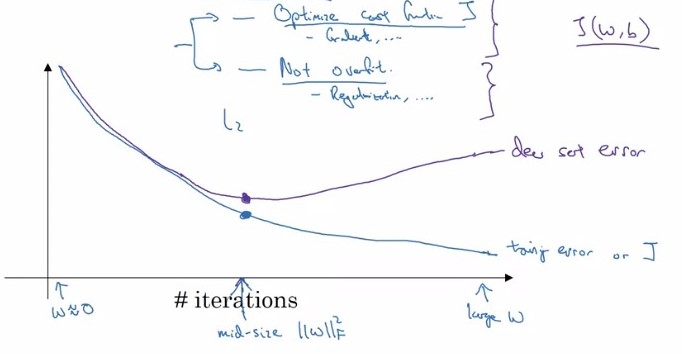 — Optimize cost function J
- Gradient, ....
J(w,b)
— Not overfit.
- Regularization, ....
L2
dev set error
training error or J
# iterations
w≈0
mid-size ||w||²_F
large w